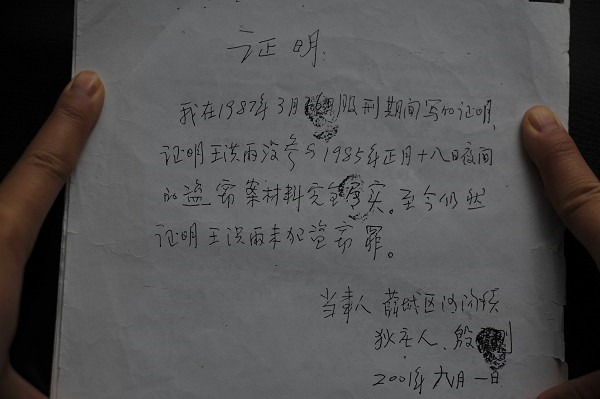 证明
我在1987年3月 服刑期间写的证明,
证明王洪雨没参与1985年正月十八日夜间
的盗窃案材料完全属实。至今仍然
证明王洪雨未犯盗窃罪。
当事人 薛城区
狄庄人、殷
2001年九月一日